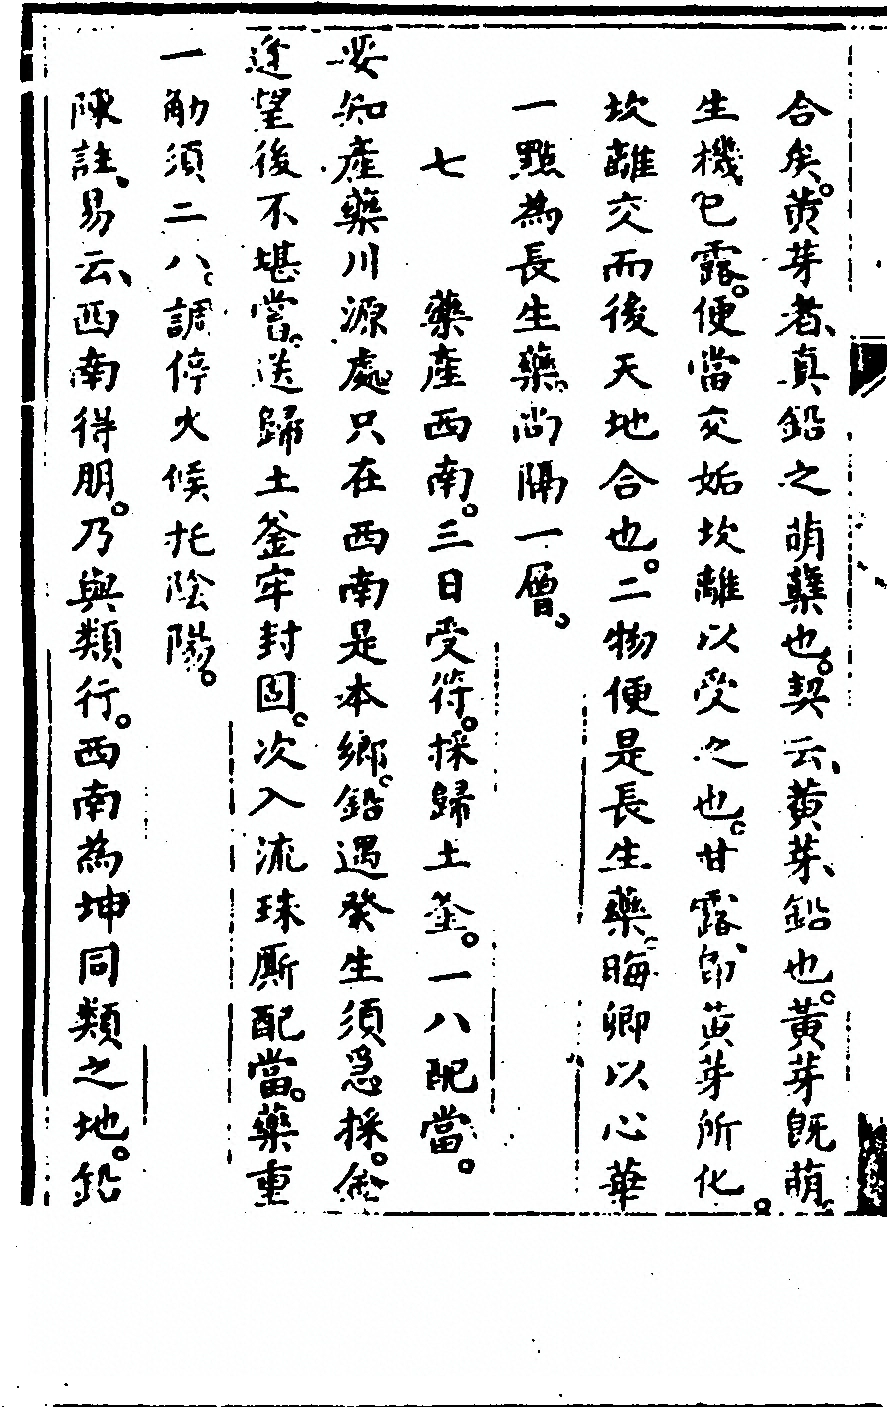 合矣。黃芽者、真鉛之萌蘖也。契云、黃芽、鉛也。黃芽既萌。
生機已露。便當交姤坎離以受之也。甘露、即黃芽所化。
坎離交而後天地合也。二物便是長生藥。晦卿以心華
一點為長生藥。尚隔一層。
七　藥產西南。三日受符。採歸土釜。一八配當。
要知產藥川源處只在西南是本鄉。鉛遇癸生須急採。金
逢望後不堪嘗。送歸土釜牢封固。次入流珠厮配當。藥重
一觔須二八。調停火候托陰陽。
陳註、易云、西南得朋。乃與類行。西南為坤同類之地。鉛